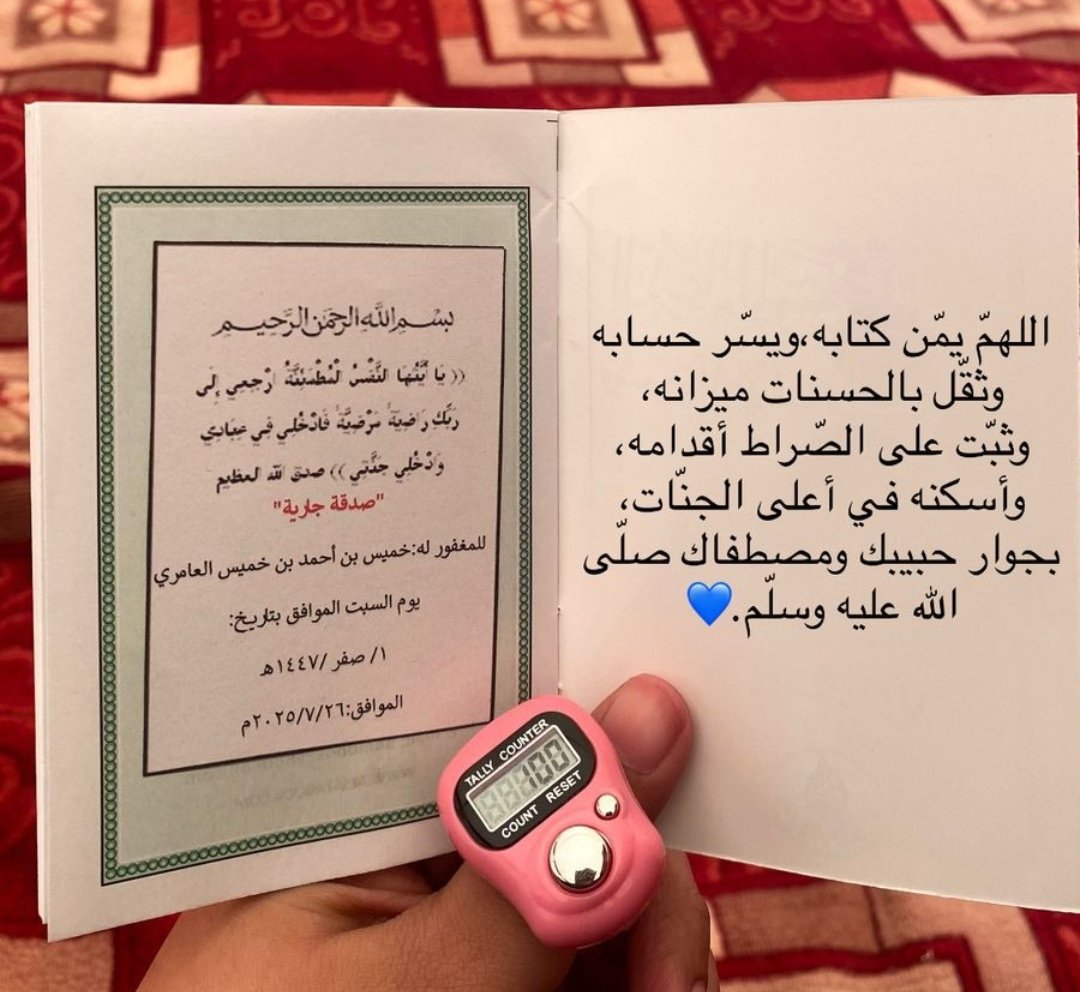 بسم الله الرحمن الرحيم
(( يَا أَيَّتُهَا النَّفْسُ الْمُطْمَئِنَّةُ ارْجِعِي إِلَى
رَبِّكِ رَاضِيَةً مَرْضِيَّةً فَادْخُلِي فِي عِبَادِي
وَادْخُلِي جَنَّتِي )) صدق الله العظيم
"صدقة جارية"
للمغفور له:خميس بن أحمد بن خميس العامري
يوم السبت الموافق بتاريخ:
١/ صفر /١٤٤٧هـ
الموافق:٢٠٢٥/٧/٢٦م
اللهمّ يمّن كتابه،ويسّر حسابه
وثقّل بالحسنات ميزانه،
وثبّت على الصّراط أقدامه،
وأسكنه في أعلى الجنّات،
بجوار حبيبك ومصطفاك صلّى
الله عليه وسلّم.💙
TALLY COUNTER
100
COUNT RESET